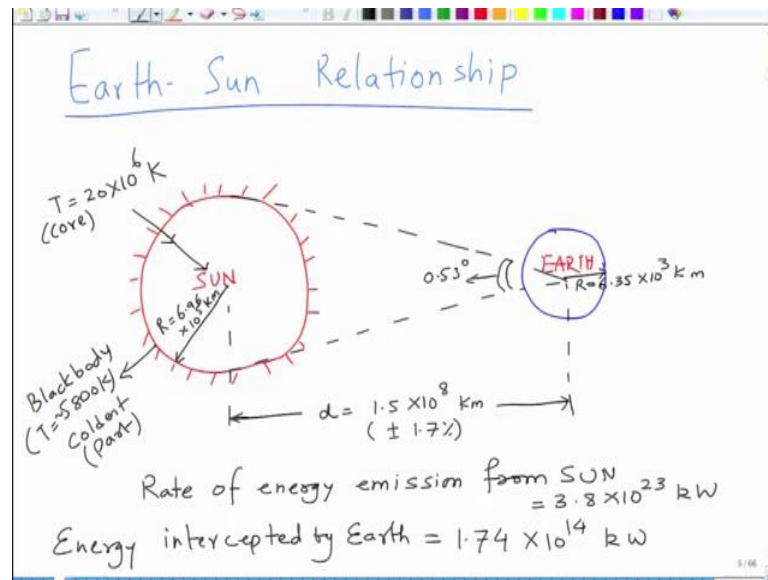 Earth- Sun Relationship
T = 20×10⁶ K
(core)
SUN
R=6.96
×10⁵ km
Blackbody
(T=~5800K)
Coldent
(Part)
0.53°
EARTH
R=6.35 ×10³ km
d= 1.5 ×10⁸ km
(± 1.7%)
Rate of energy emission from SUN
= 3.8 ×10²³ kW
Energy intercepted by Earth = 1.74 ×10¹⁴ kW
5/66